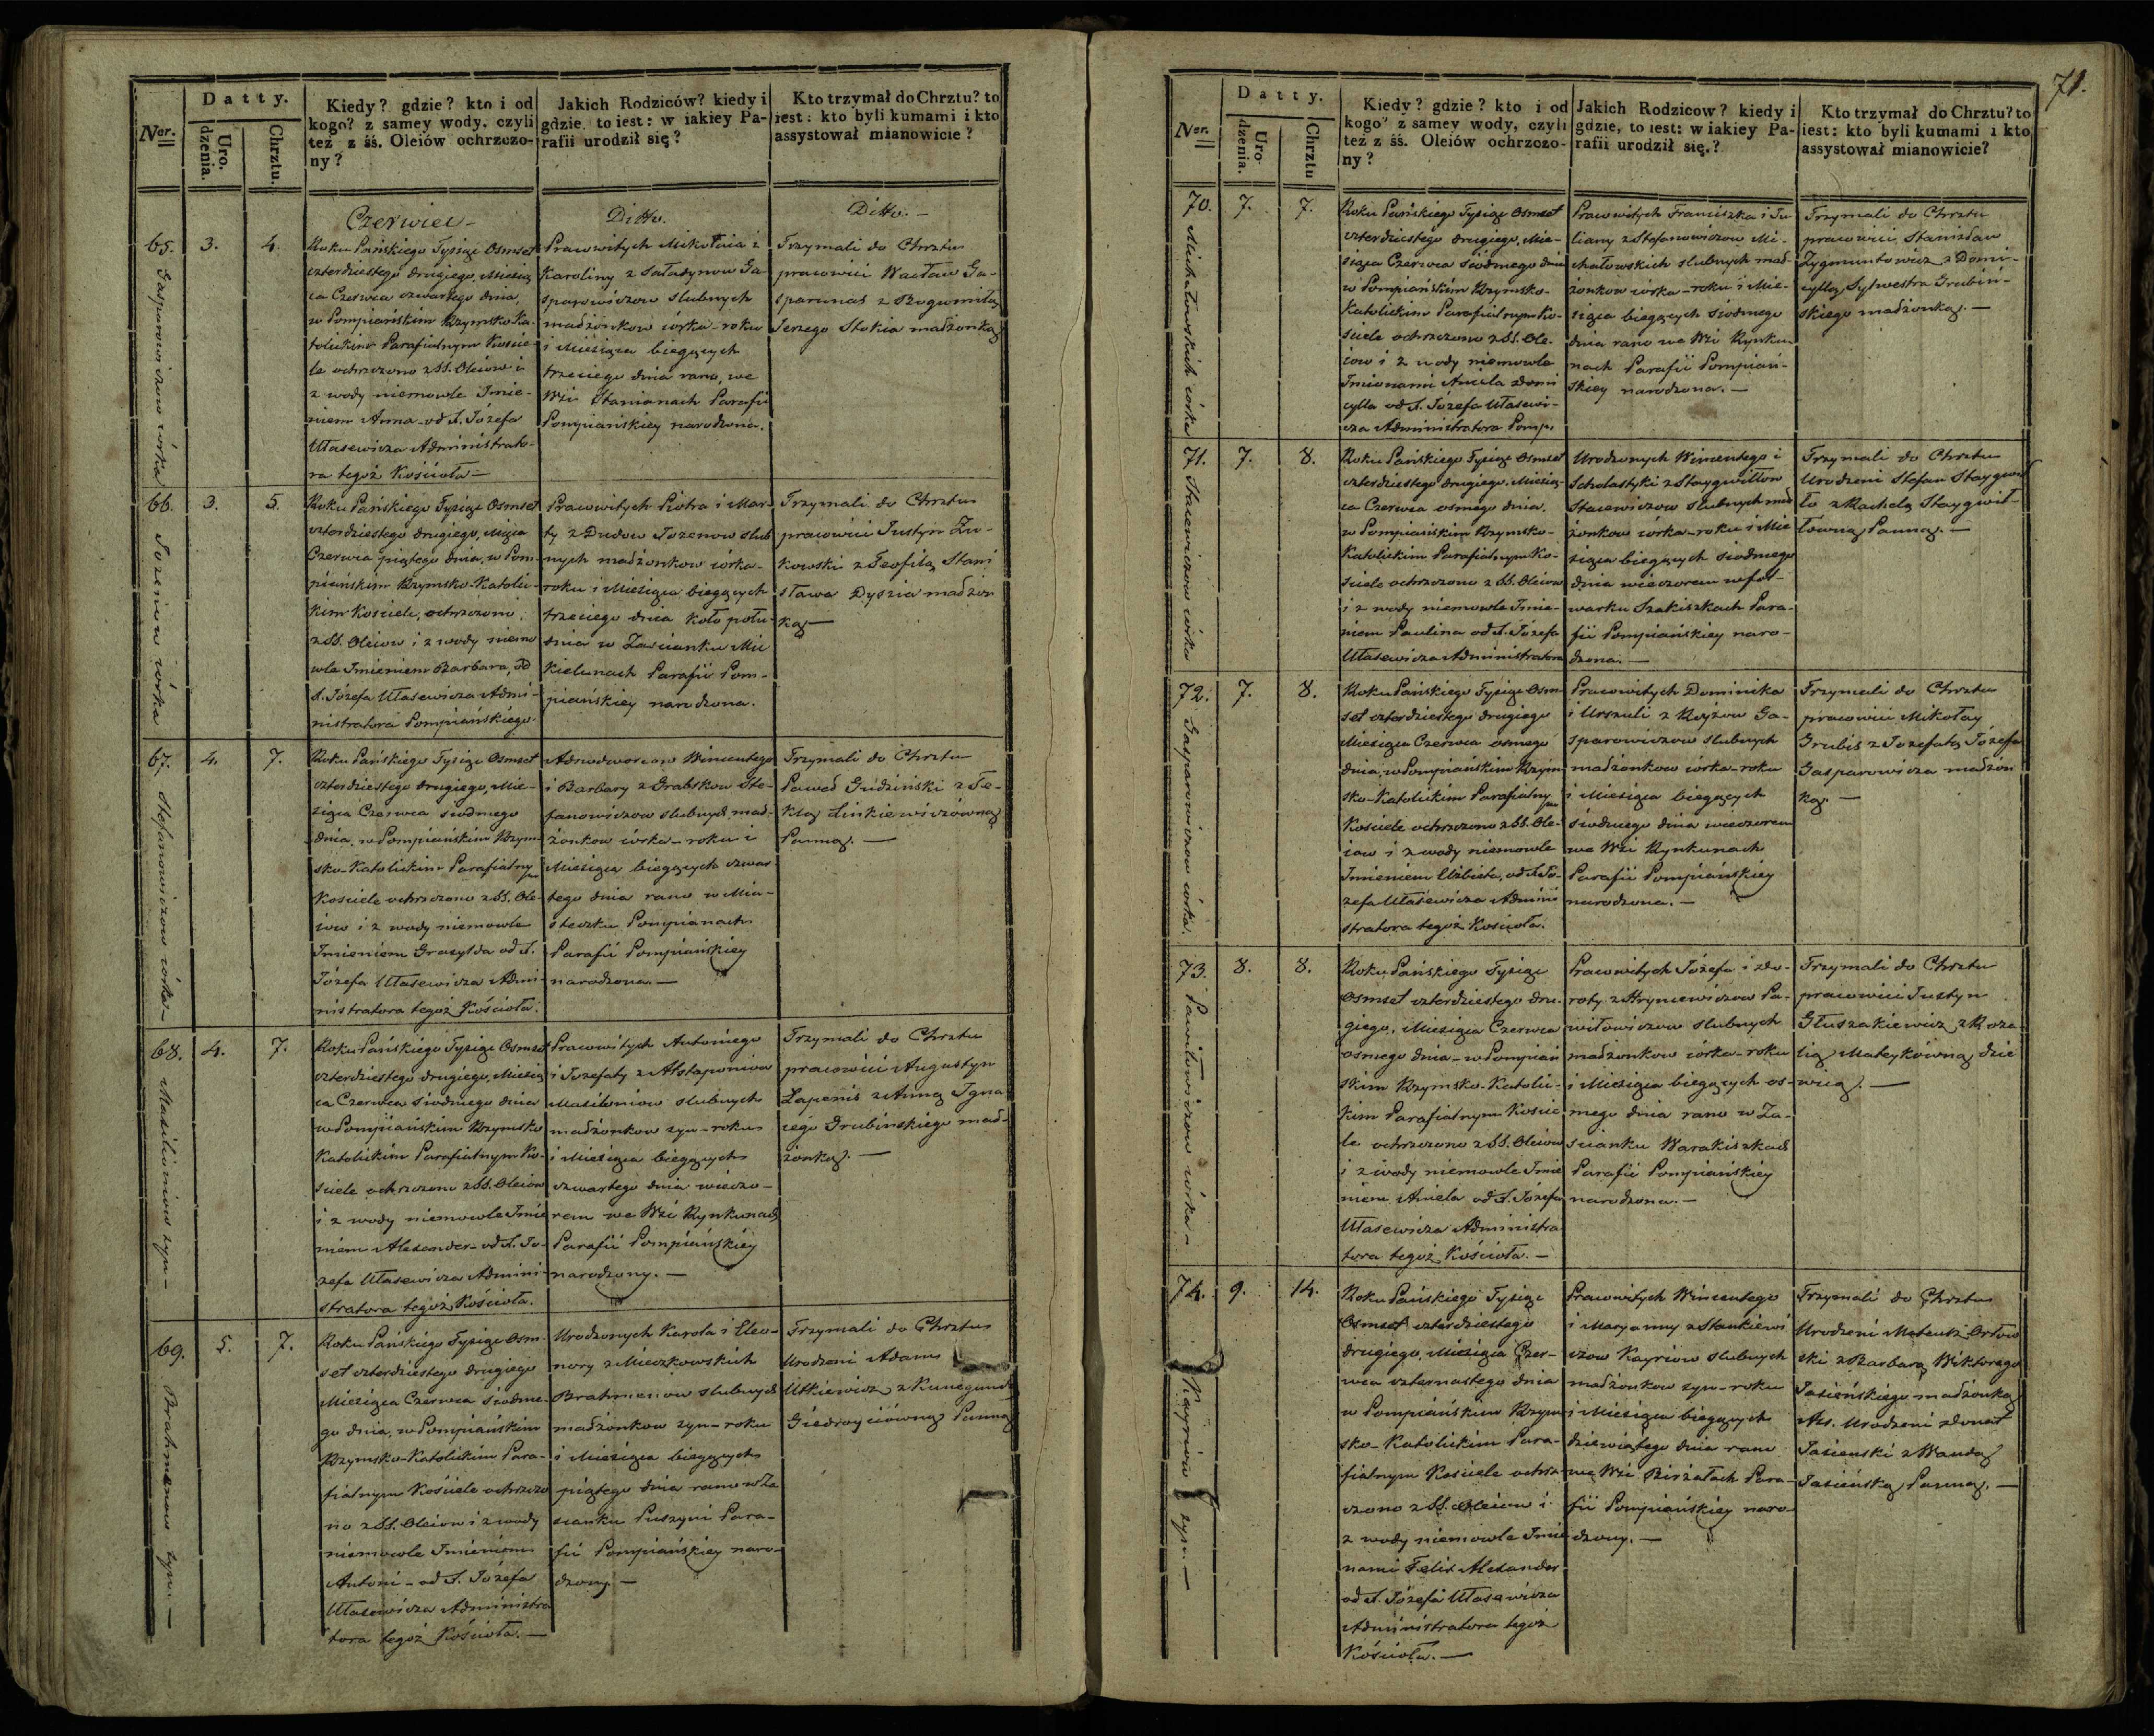 71.
Datty.
Ner.
Uro-
dzenia.
Chrztu.
Kiedy? gdzie? kto i od
kogo? z samey wody, czyli
też z śś. Oleiów ochrzczo-
ny?
Jakich Rodziców? kiedy i
gdzie, to iest: w iakiey Pa-
rafii urodził się?
Kto trzymał do Chrztu? to
iest: kto byli kumami i kto
assystował mianowicie?
Czerwiec
Ditto.
Ditto.
65.
3.
4.
Gasparowiczow córka
Roku Pańskiego Tysiąc Osmset
czterdziestego drugiego, Miesią
ca Czerwca czwartego dnia,
w Pompiańskim Rzymsko Ka-
tolickim Parafialnym Koście-
le ochrzczono z SS. Oleiów i
z wody niemowle Imie-
niem Anna od X. Józefa
Ułasewicza Administrato-
ra tegoż Kościoła
Pracowitych Mikołaia i
Karoliny z Ga-
sparowiczow slubnych
małżonkow córka roku
i Miesiąca biegących
trzeciego dnia rano, we
Wsi Stanianach Parafii
Pompiańskiey narodzona.
Trzymali do Chrztu
pracowici Wacław Ga-
sparunas z Bogumiłą
Jerzego Stokia małżonką
66.
3.
5.
Tozenow córka
Roku Pańskiego Tysiąc Osmset
czterdziestego drugiego, Msąca
Czerwca piątego dnia, w Pom-
piańskim Rzymsko-Katolic-
kim Kosciele, ochrzczono
z SS. Oleiow i z wody niemo
wle Imieniem Barbara, od
X. Józefa Ułasewicza Admi-
nistratora Pompiańskiego.
Pracowitych Piotra i Mar-
ty z Dudow Tozenow slub
nych małżonkow córka-
roku i Miesiąca biegących
trzeciego dnia koło połu-
dnia w Zascianku Mi
kielunach Parafii Pom-
piańskiey narodzona.
Trzymali do Chrztu
pracowici Justyn Żu-
kowski z Teofilą Stani
sława Dyszia małżon
ką
67.
4.
7.
Stefanowiczow córka
Roku Pańskiego Tysiąc Osmset
czterdziestego drugiego, Mie-
siąca Czerwca siodmego
dnia, w Pompiańskim Rzym-
sko-Katolickim Parafialnym
Kosciele ochrzczono z SS. Ole-
iow i z wody niemowle
Imieniem Grasylda od X.
Józefa Ułasewicza Admi-
nistratora tegoż Kościoła.
Wincentego
i Barbary z Grabskow Ste-
fanowiczow slubnych mał-
żonkow córka roku i
Miesiąca biegących czwar
tego dnia rano w Mia-
steczku Pompianach
Parafii Pompiańskiey
narodzona.
Trzymali do Chrztu
Paweł Gudziński z Te-
klą Linkiewiczówną
Panną.
68.
4.
7.
syn
Roku Pańskiego Tysiąc Osmset
czterdziestego drugiego, Miesią
ca Czerwca siodmego dnia
w Pompiańskim Rzymsko
Katolickim Parafialnym Ko-
sciele ochrzczono z SS. Oleiow
i z wody niemowle Imie
niem Alexander od X. Jo-
zefa Ułasewicza Admini-
stratora tegoż Kościoła.
Pracowitych Antoniego
i Jozefaty z
slubnych
małżonkow syn roku
i Miesiąca biegących
czwartego dnia wieczo-
rem we Wsi Rynkunach
Parafii Pompiańskiey
narodzony.
Trzymali do Chrztu
pracowici Augustyn
Łapenis z Anną Igna
cego Grubińskiego mał-
żonką.
69.
5.
7.
syn.
Roku Pańskiego Tysiąc Osm-
set czterdziestego drugiego
Miesiąca Czerwca siodme-
go dnia, w Pompiańskim
Rzymsko-Katolickim Para-
fialnym Kościele ochrzczo
no z SS. Oleiow i z wody
niemowle Imieniem
Antoni od X. Józefa
Ułasewicza Administra
tora tegoż Kościoła.
Urodzonych Karola i Eleo-
nory z Mieczkowskich
slubnych
małżonkow syn roku
i Miesiąca biegących
piątego dnia rano w Za
scianku Puszyni Para-
fii Pompiańskiey naro-
dzony.
Trzymali do Chrztu
Urodzeni Adam
Utkiewicz z Kunegundą
Giedroyciówną Panną
Datty.
Ner.
Uro-
dzenia.
Chrztu
Kiedy? gdzie? kto i od
kogo? z samey wody, czyli
też z śś. Oleiów ochrzczo-
ny?
Jakich Rodzicow? kiedy i
gdzie, to iest: w iakiey Pa-
rafii urodził się.?
Kto trzymał do Chrztu? to
iest: kto byli kumami i kto
assystował mianowicie?
70.
7.
7.
Michałowskich córka
Roku Pańskiego Tysiąc Osmset
czterdziestego drugiego, Mie-
siąca Czerwca siódmego dnia
w Pompiańskim Rzymsko-
Katolickim Parafialnym Ko-
sciele ochrzczono z SS. Ole-
iow i z wody niemowle
Imionami Aniela Domi
cylla od X. Józefa Ułasewi-
cza Administratora Pomp.
Pracowitych Franciszka i Ju
liany z Stefanowiczow Mi-
chałowskich slubnych mał-
żonkow córka roku i Mie-
siąca biegących siodmego
dnia rano we Wsi Rynku
nach Parafii Pompiań-
skiey narodzona.
Trzymali do Chrztu
pracowici Stanisław
Zygmuntowicz z Domi-
cyllą Sylwestra Grubiń-
skiego małżonką.
71.
7.
8.
Stacewiczow córka
Roku Pańskiego Tysiąc Osmset
czterdziestego drugiego, Miesią
ca Czerwca osmego dnia,
w Pompiańskim Rzymsko-
Katolickim Parafialnym Ko-
sciele ochrzczono z SS. Oleiow
i z wody niemowle Imie-
niem Paulina od X. Józefa
Ułasewicza Administratora
Urodzonych Wincentego i
Scholastyki z Staygwiłłow
Stacewiczow slubnych mał
żonkow córka roku i Mie
siąca biegących siodmego
dnia wieczorem w fol-
warku Szakiszkach Para-
fii Pompiańskiey naro-
dzona.
Trzymali do Chrztu
Urodzeni Stefan Staygwił
ło z Rachelą Staygwił-
łowną Panną.
72.
7.
8.
Gasparowiczow córka.
Roku Pańskiego Tysiąc Osm-
set czterdziestego drugiego
Miesiąca Czerwca osmego
dnia, w Pompiańskim Rzym
sko-Katolickim Parafialnym
Kosciele ochrzczono z SS. Ole-
iow i z wody niemowle
Imieniem Elżbieta, od X. Jó-
zefa Ułasewicza Admini
stratora tegoż Kościoła.
Pracowitych Dominika
i Urszuli z Ga-
sparowiczow slubnych
małżonkow córka roku
i Miesiąca biegących
siodmego dnia wieczorem
we Wsi Rynkunach
Parafii Pompiańskiey
narodzona.
Trzymali do Chrztu
pracowici Mikołay
Grubis z Jozefatą Józefa
Gasparowicza małżon
ką.
73.
8.
8.
Pawiłowiczow córka
Roku Pańskiego Tysiąc
Osmset czterdziestego dru-
giego, Miesiąca Czerwca
osmego dnia w Pompiań
skim Rzymsko-Katolic-
kim Parafialnym Koscie
le ochrzczono z SS. Oleiow
i z wody niemowle Imie
niem Aniela od X. Józefa
Ułasewicza Administra
tora tegoż Kościoła.
Pracowitych Józefa i Do-
roty z Hryniewiczow Pa-
wiłowiczow slubnych
małżonkow córka roku
i Miesiąca biegących os-
mego dnia rano w Za-
scianku Warakiszkach
Parafii Pompiańskiey
narodzona.
Trzymali do Chrztu
pracowici Justyn
Głuszakiewicz z Roza
lią Mateykówną dzie
wicą.
74.
9.
14.
Kayriow syn.
Roku Pańskiego Tysiąc
Osmset czterdziestego
drugiego, Miesiąca Czer-
wca czternastego dnia
w Pompiańskim Rzym-
sko-Katolickim Para-
fialnym Kosciele ochrz-
czono z SS. Oleiow i
z wody niemowle Imio
nami Felix Alexander
od X. Józefa Ułasewicza
Administratora tegoż
Kościoła.
Pracowitych Wincentego
i Maryanny z Stankiewi
czow Kayriow slubnych
małżonkow syn roku
i Miesiąca biegących
dziewiątego dnia rano
we Wsi Birżałach Para-
fii Pompiańskiey naro
dzony.
Trzymali do Chrztu
Urodzeni Mateusz Orłow
ski z Barbarą Wiktorego
Jasieńskiego małżonką
As. Urodzeni Donat
Jasienski z Wandą
Jasieńską Panną.